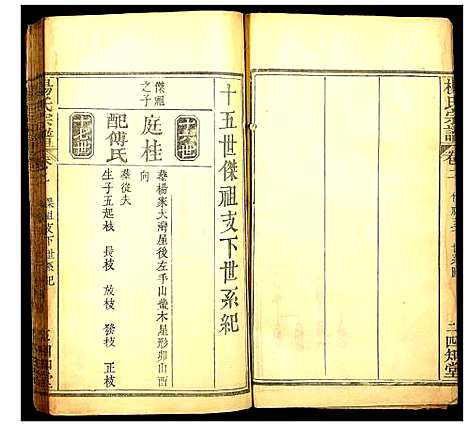 楊氏宗譜
卷二
四知堂
十五世傑祖支下世系紀
十六世
傑祖之子
庭桂
葬楊家大灣屋後左手山盤木星形卯山酉向
配傅氏
葬從夫
生子五起枝 長枝 放枝 發枝 正枝
楊氏宗譜
傑祖支下世系紀